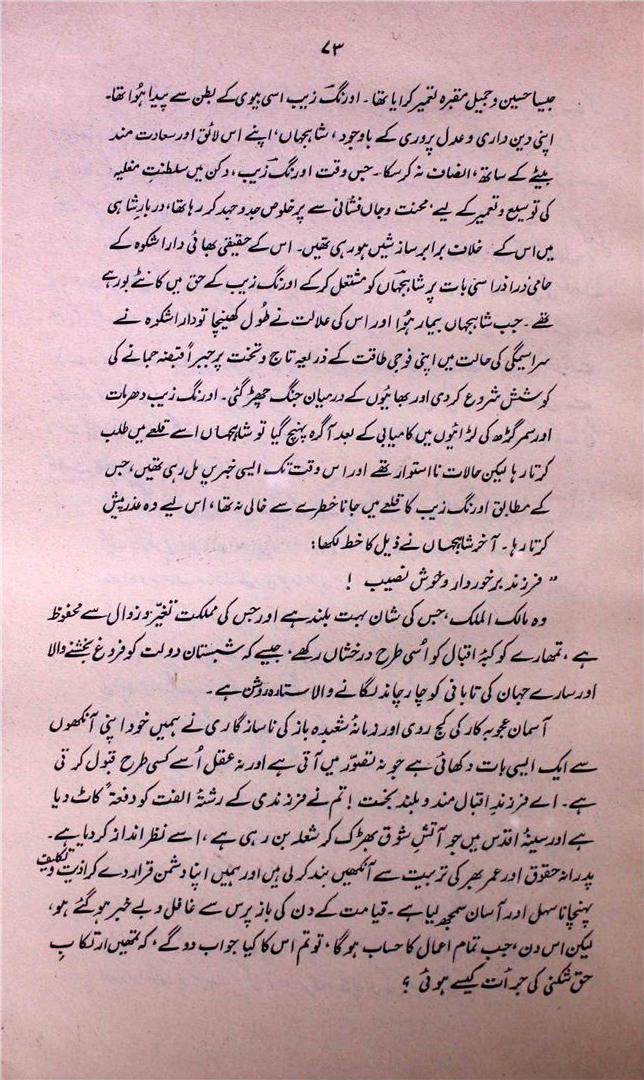 ۷۳
جیسا حسین و جمیل مقبرہ تعمیر کرایا تھا۔ اورنگ زیب اسی بیوی کے بطن سے پیدا ہُوا تھا۔
اپنی دین داری و عدل پروری کے باوجود، شاہجہاں، اپنے اس لائق اور سعادت مند
بیٹے کے ساتھ، انصاف نہ کر سکا۔ جس وقت اورنگ زیب، دکن میں سلطنتِ مغلیہ
کی توسیع و تعمیر کے لیے، محنت و جاں فشانی سے پرخلوص جدوجہد کر رہا تھا، دربارِ شاہی
میں اس کے خلاف برابر سازشیں ہو رہی تھیں۔ اس کے حقیقی بھائی داراشکوہ کے
حامی ذرا ذرا سی بات پر شاہجہاں کو مشتعل کر کے اورنگ زیب کے حق میں کانٹے بو رہے
تھے۔ جب شاہجہاں بیمار ہُوا اور اس کی علالت نے طُول کھینچا تو داراشکوہ نے
سراسیمگی کی حالت میں اپنی فوجی طاقت کے ذریعہ تاج و تخت پر جبراً قبضہ جمانے کی
کوشش شروع کر دی اور بھائیوں کے درمیان جنگ چھڑ گئی۔ اورنگ زیب دھرمات
اور سمر گڑھ کی لڑائیوں میں کامیابی کے بعد آگرہ پہنچ گیا تو شاہجہاں اسے قلعے میں طلب
کرتا رہا لیکن حالات نا استوار تھے اور اس وقت تک ایسی خبریں مل رہی تھیں، جس
کے مطابق اورنگ زیب کا قلعے میں جانا خطرے سے خالی نہ تھا، اس لیے وہ عذر پیش
کرتا رہا۔ آخر شاہجہاں نے ذیل کا خط لکھا:
"فرزند برخوردار و خوش نصیب !
وہ مالک الملک، جس کی شان بہت بلند ہے اور جس کی مملکت تغیّر و زوال سے محفوظ
ہے، تمھارے کوکبۂ اقبال کو اُسی طرح درخشاں رکھے، جیسے کہ شبستان دولت کو فروغ بخشنے والا
اور سارے جہان کی تابانی کو چار چاند لگانے والا ستارہ روشن ہے۔
آسمان عجوبہ کار کی کج روی اور زمانۂ شعبدہ باز کی ناسازگاری نے ہمیں خود اپنی آنکھوں
سے ایک ایسی بات دکھائی ہے جو نہ تصوّر میں آتی ہے اور نہ عقل اُسے کسی طرح قبول کرتی
ہے۔ اے فرزندِ اقبال مند و بلند بخت ! تم نے فرزندی کے رشتۂ الفت کو دفعۃً کاٹ دیا
ہے اور سینۂ اقدس میں جو آتشِ شوق بھڑک کر شعلہ بن رہی ہے، اسے نظر انداز کر دیا ہے۔
پدرانہ حقوق اور عمر بھر کی تربیت سے آنکھیں بند کر لی ہیں اور ہمیں اپنا دشمن قرار دے کر اذیت و تکلیف
پہنچانا سہل اور آسان سمجھ لیا ہے۔ قیامت کے دن کی باز پرس سے غافل و بے خبر ہو گئے ہو،
لیکن اس دن، جب تمام اعمال کا حساب ہوگا، تو تم اس کا کیا جواب دو گے، کہ تمھیں ارتکابِ
حق شکنی کی جرأت کیسے ہوئی ؟